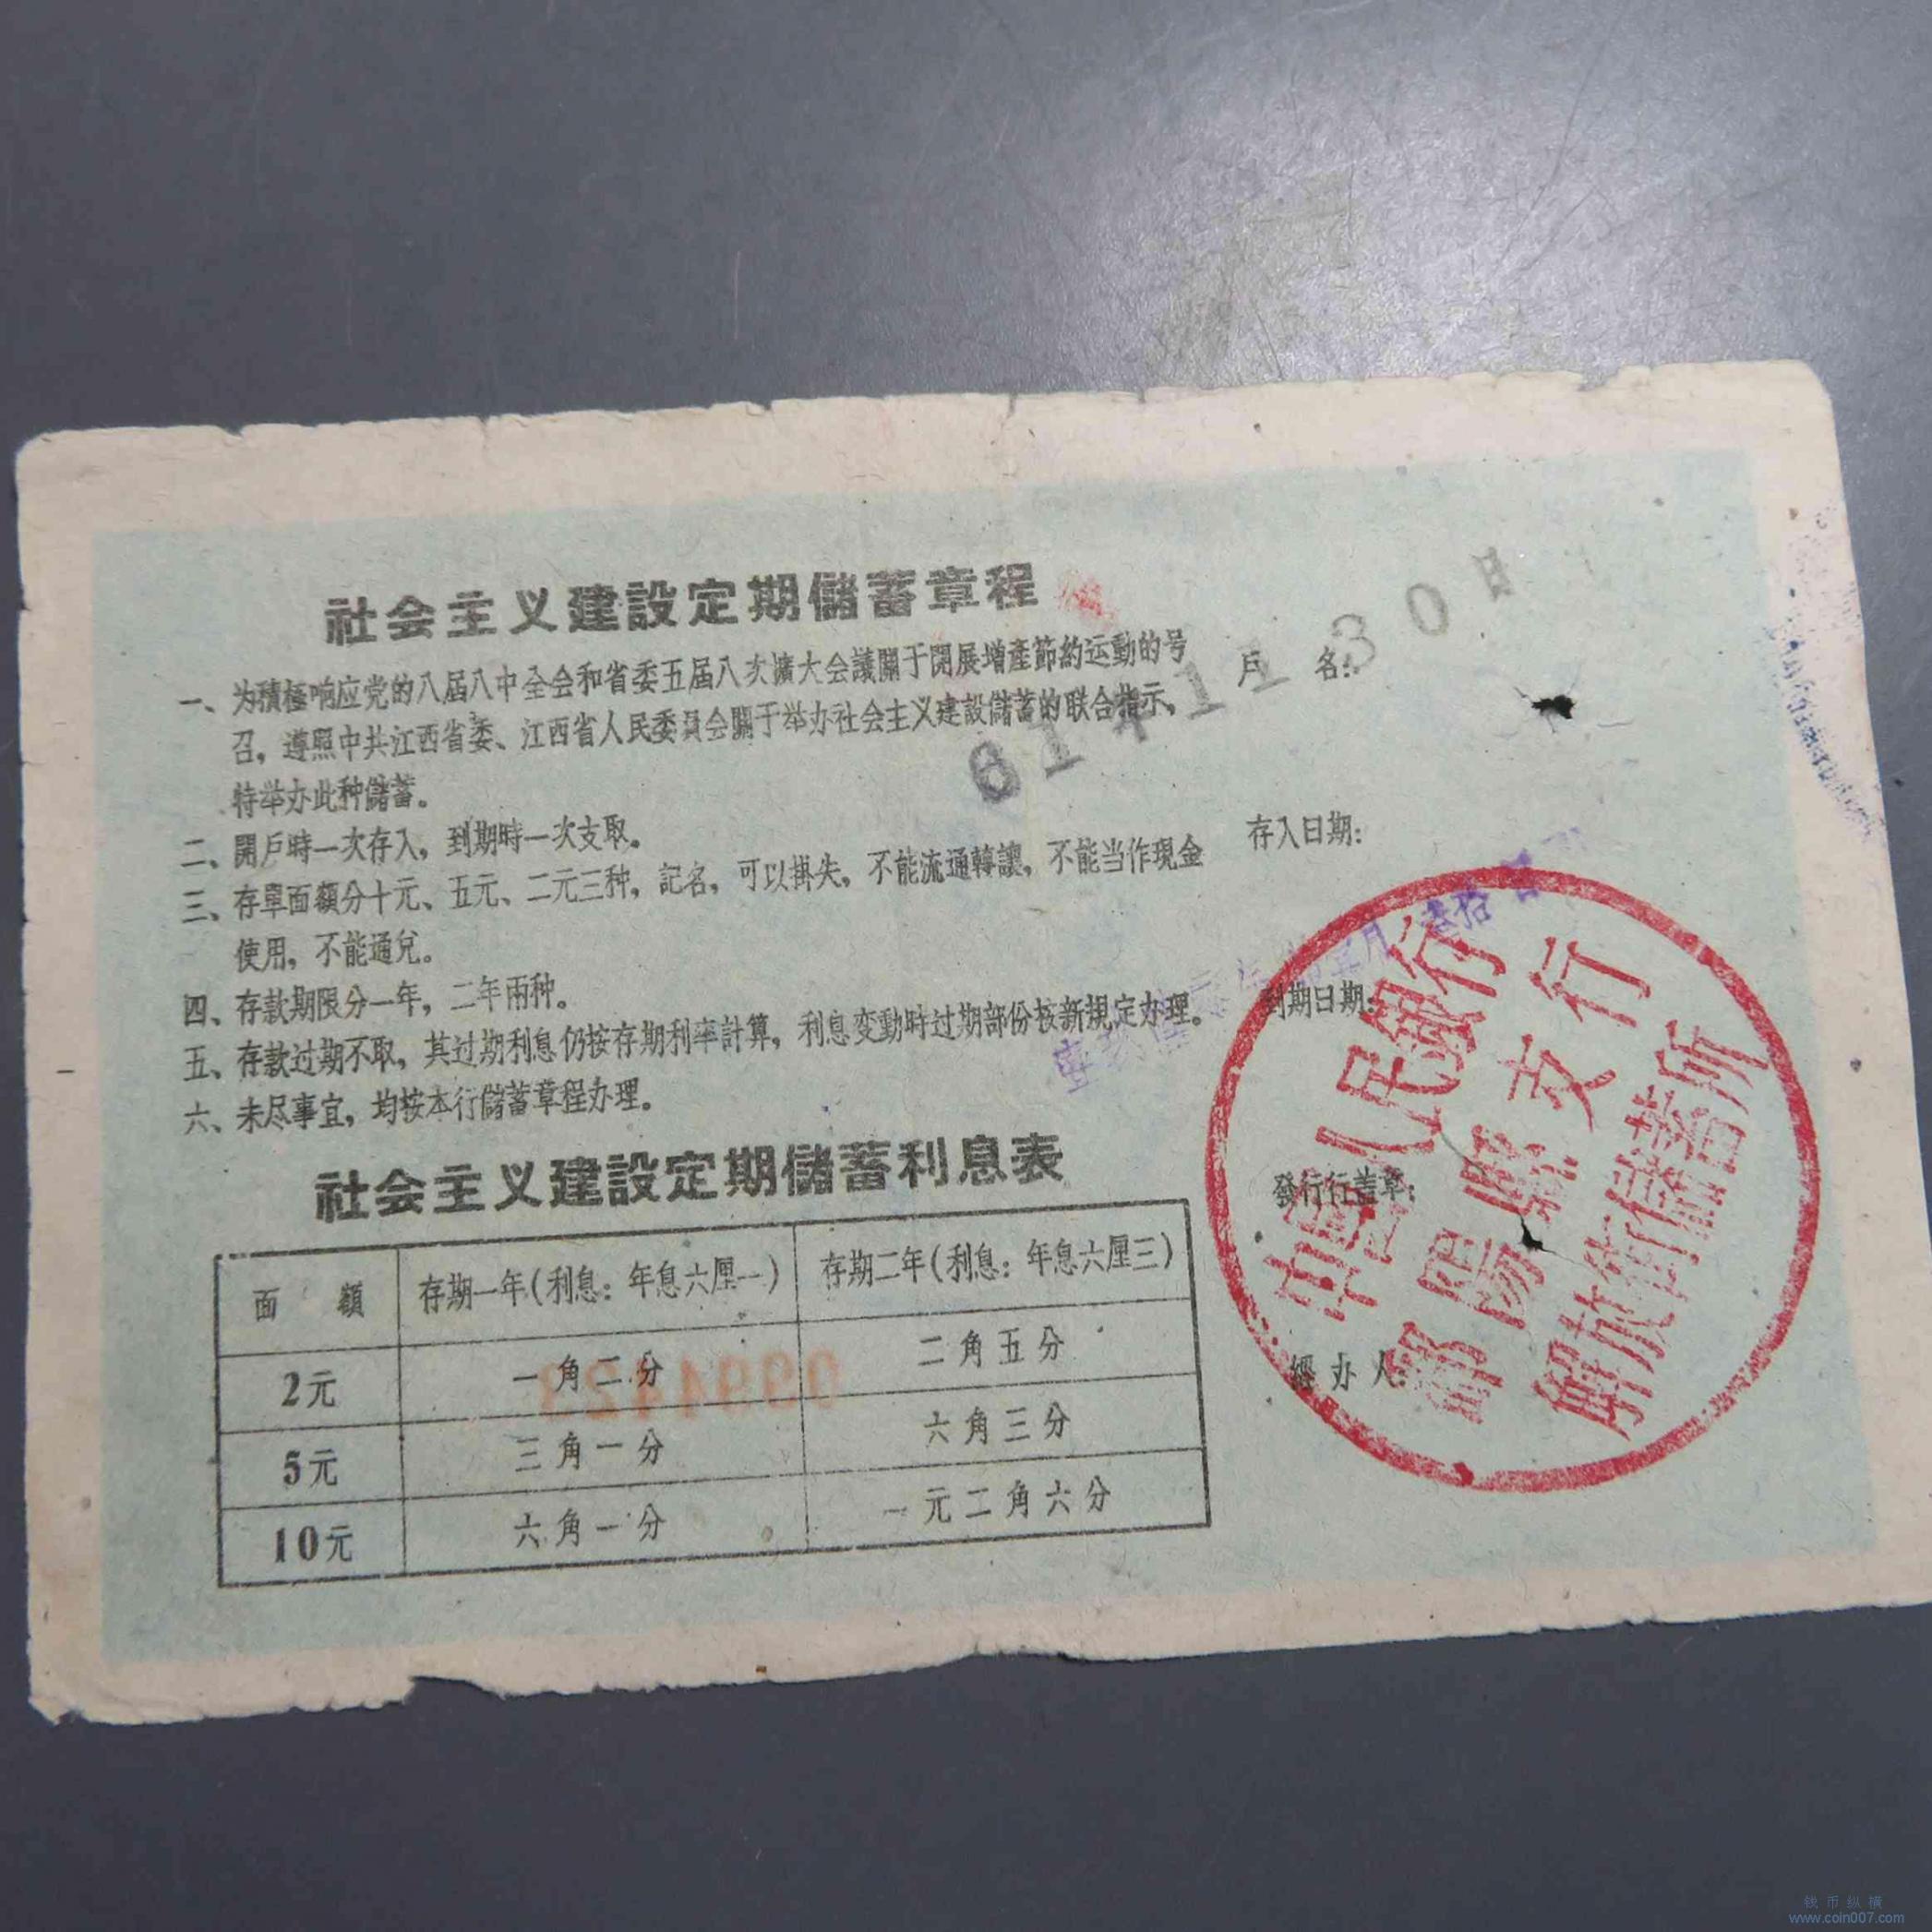 社会主义建設定期儲蓄章程
一、为積極响应党的八届八中全会和省委五届八次擴大会議關于開展增產節約运動的号
召，遵照中共江西省委、江西省人民委員会關于举办社会主义建設儲蓄的联合指示，
特举办此种儲蓄。
二、開戶時一次存入，到期時一次支取。
三、存單面額分十元、五元、二元三种，記名，可以掛失，不能流通轉讓，不能当作現金
使用，不能通兌。
四、存款期限分一年，二年兩种。
五、存款过期不取，其过期利息仍按存期利率計算，利息变動时过期部份按新規定办理。
六、未尽事宜，均按本行儲蓄章程办理。
社会主义建設定期儲蓄利息表
面 額 存期一年(利息：年息六厘一) 存期二年(利息：年息六厘三)
2元 一角二分 二角五分
5元 三角一分 六角三分
10元 六角一分 一元二角六分
戶 名：
存入日期：
到期日期：
發行行盖章：
經办人
中國人民銀行
縣支行
解放街儲蓄所
钱币纵横
www.coin007.com